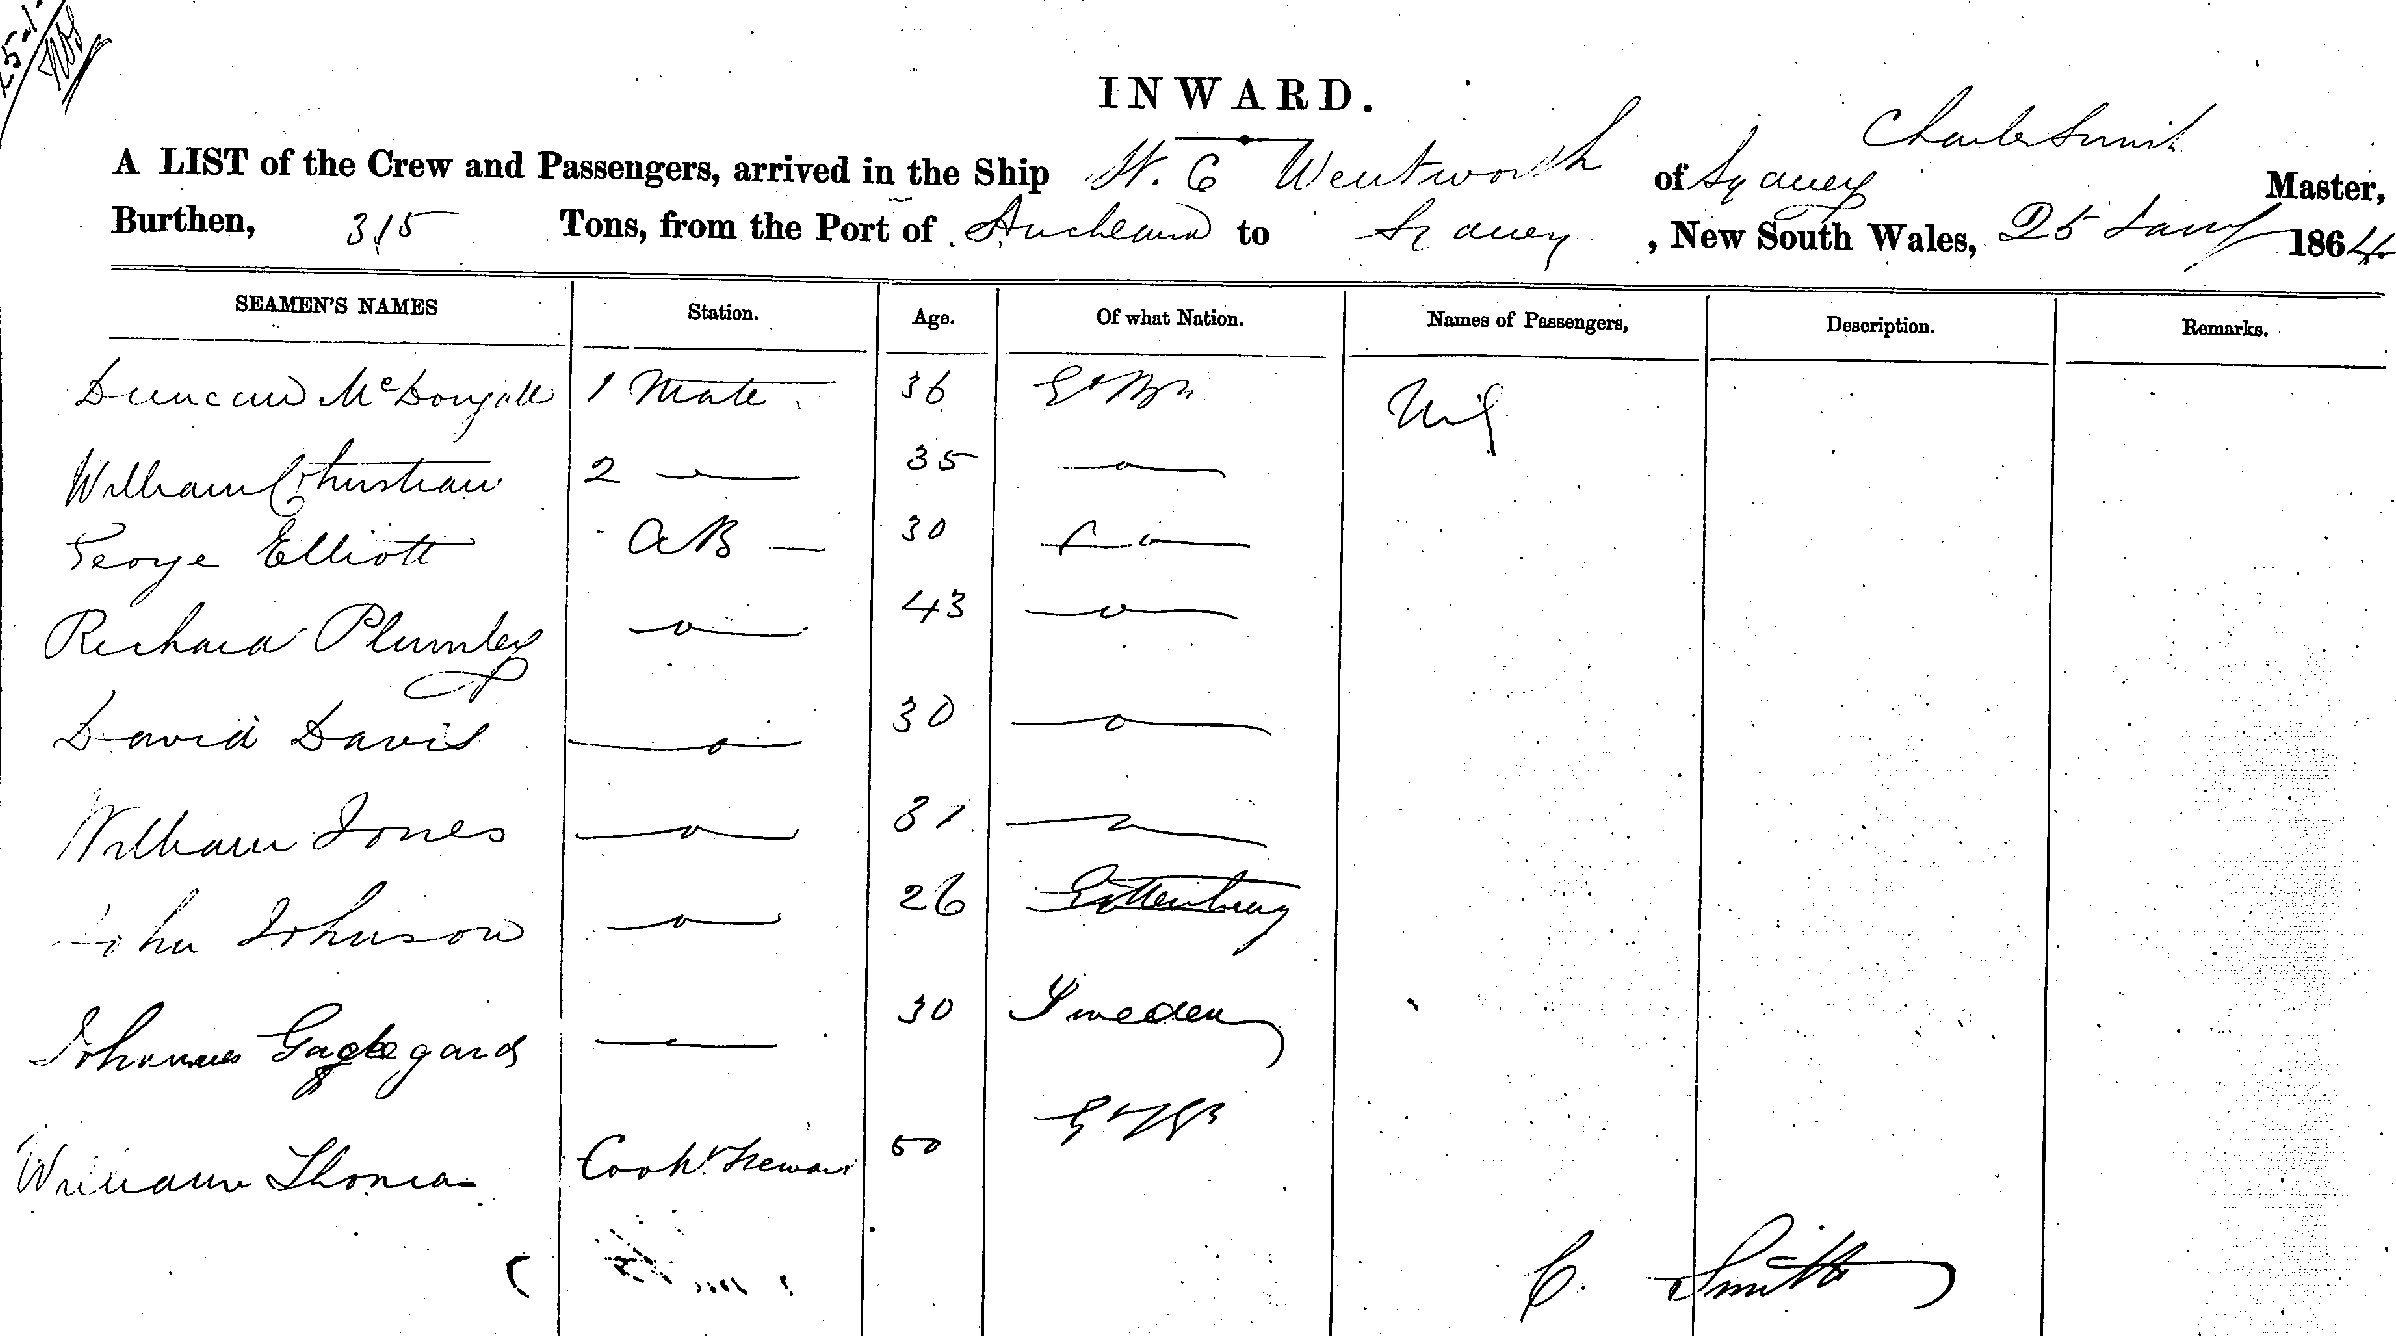 INWARD.
Charles Smith
A LIST of the Crew and Passengers, arrived in the Ship W. C Wentworth of Sydney Master,
Burthen, 315 Tons, from the Port of Auckland to Sydney, New South Wales, 25 Jany 1864
SEAMEN'S NAMES Station. Age. Of what Nation. Names of Passengers, Description. Remarks.
Duncan McDougall 1 Mate 36 Gt Bn Nil
William Christian 2 — 35 —
George Elliott AB — 30 —
Richard Plumley — 43 —
David Davis — 30 —
William Jones — 31 —
John Johnson — 26 Gottenburg
Johannes gard — 30 Sweden
William Thomas Cook & Steward 50 Gt
C. Smith